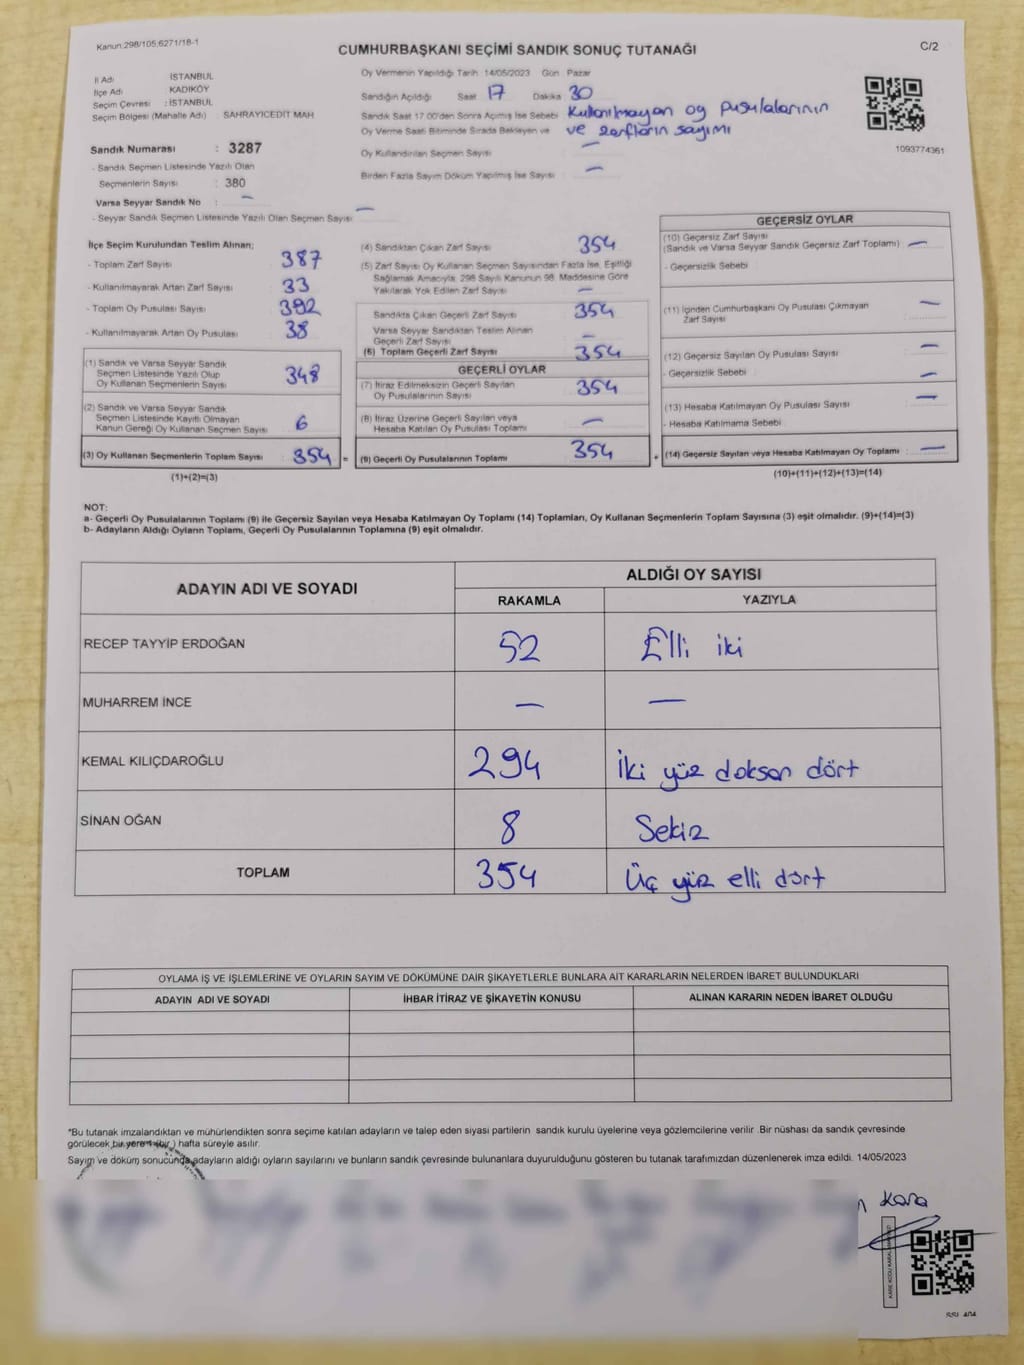 Kanun:298/105;6271/18-1
C/2
CUMHURBAŞKANI SEÇİMİ SANDIK SONUÇ TUTANAĞI
İl Adı İSTANBUL
İlçe Adı KADIKÖY
Seçim Çevresi : İSTANBUL
Seçim Bölgesi (Mahalle Adı) SAHRAYICEDİT MAH
Sandık Numarası : 3287
- Sandık Seçmen Listesinde Yazılı Olan
Seçmenlerin Sayısı : 380
Varsa Seyyar Sandık No : —
- Seyyar Sandık Seçmen Listesinde Yazılı Olan Seçmen Sayısı —
Oy Vermenin Yapıldığı Tarih 14/05/2023 Gün Pazar
Sandığın Açıldığı Saat 17 Dakika 30
Sandık Saat 17.00'den Sonra Açılmış İse Sebebi Kullanılmayan oy pusulalarının
Oy Verme Saati Bitiminde Sırada Bekleyen ve ve zarfların sayımı
Oy Kullandırılan Seçmen Sayısı —
Birden Fazla Sayım Döküm Yapılmış İse Sayısı —
1093774361
İlçe Seçim Kurulundan Teslim Alınan;
- Toplam Zarf Sayısı 387
- Kullanılmayarak Artan Zarf Sayısı 33
- Toplam Oy Pusulası Sayısı 392
- Kullanılmayarak Artan Oy Pusulası 38
(1) Sandık ve Varsa Seyyar Sandık
Seçmen Listesinde Yazılı Olup
Oy Kullanan Seçmenlerin Sayısı 348
(2) Sandık ve Varsa Seyyar Sandık
Seçmen Listesinde Kayıtlı Olmayan
Kanun Gereği Oy Kullanan Seçmen Sayısı 6
(3) Oy Kullanan Seçmenlerin Toplam Sayısı 354 =
(1)+(2)=(3)
(4) Sandıktan Çıkan Zarf Sayısı 354
(5) Zarf Sayısı Oy Kullanan Seçmen Sayısından Fazla İse, Eşitliği
Sağlamak Amacıyla, 298 Sayılı Kanunun 98. Maddesine Göre
Yakılarak Yok Edilen Zarf Sayısı —
Sandıkta Çıkan Geçerli Zarf Sayısı 354
Varsa Seyyar Sandıktan Teslim Alınan
Geçerli Zarf Sayısı —
(6) Toplam Geçerli Zarf Sayısı 354
GEÇERLİ OYLAR
(7) İtiraz Edilmeksizin Geçerli Sayılan
Oy Pusulalarının Sayısı 354
(8) İtiraz Üzerine Geçerli Sayılan veya
Hesaba Katılan Oy Pusulası Toplamı —
(9) Geçerli Oy Pusulalarının Toplamı 354 +
GEÇERSİZ OYLAR
(10) Geçersiz Zarf Sayısı
(Sandık ve Varsa Seyyar Sandık Geçersiz Zarf Toplamı) —
- Geçersizlik Sebebi
(11) İçinden Cumhurbaşkanı Oy Pusulası Çıkmayan —
Zarf Sayısı
(12) Geçersiz Sayılan Oy Pusulası Sayısı —
- Geçersizlik Sebebi —
(13) Hesaba Katılmayan Oy Pusulası Sayısı —
- Hesaba Katılmama Sebebi
(14) Geçersiz Sayılan veya Hesaba Katılmayan Oy Toplamı : —
(10)+(11)+(12)+(13)=(14)
NOT:
a- Geçerli Oy Pusulalarının Toplamı (9) ile Geçersiz Sayılan veya Hesaba Katılmayan Oy Toplamı (14) Toplamları, Oy Kullanan Seçmenlerin Toplam Sayısına (3) eşit olmalıdır. (9)+(14)=(3)
b- Adayların Aldığı Oyların Toplamı, Geçerli Oy Pusulalarının Toplamına (9) eşit olmalıdır.
ADAYIN ADI VE SOYADI
ALDIĞI OY SAYISI
RAKAMLA YAZIYLA
RECEP TAYYİP ERDOĞAN 52 Elli iki
MUHARREM İNCE — —
KEMAL KILIÇDAROĞLU 294 İki yüz doksan dört
SİNAN OĞAN 8 Sekiz
TOPLAM 354 Üç yüz elli dört
OYLAMA İŞ VE İŞLEMLERİNE VE OYLARIN SAYIM VE DÖKÜMÜNE DAİR ŞİKAYETLERLE BUNLARA AİT KARARLARIN NELERDEN İBARET BULUNDUKLARI
ADAYIN ADI VE SOYADI İHBAR İTİRAZ VE ŞİKAYETİN KONUSU ALINAN KARARIN NEDEN İBARET OLDUĞU
*Bu tutanak imzalandıktan ve mühürlendikten sonra seçime katılan adayların ve talep eden siyasi partilerin sandık kurulu üyelerine veya gözlemcilerine verilir .Bir nüshası da sandık çevresinde
görülecek bir yere 1 (bir ) hafta süreyle asılır.
Sayım ve döküm sonucunda adayların aldığı oyların sayılarını ve bunların sandık çevresinde bulunanlara duyurulduğunu gösteren bu tutanak tarafımızdan düzenlenerek imza edildi. 14/05/2023
Kara